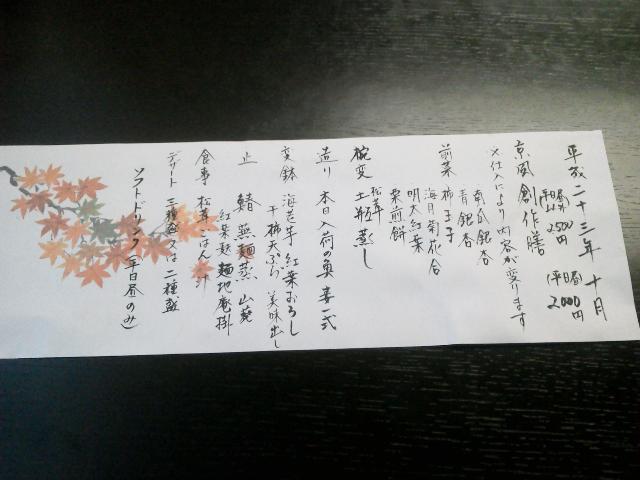 平成二十三年 十月
京風創作膳
2500円
平日昼 2000円
※仕入により内容が変ります
前菜 柿玉子
南瓜銀杏
青銀杏
海月菊花合
明太紅葉
栗煎餅
椀変 土瓶蒸し
松茸
造り 本日入荷の魚 妻一式
変鉢 海老芋 紅葉おろし
干柿天ぷら 美味出し
止 鰆蕪麺蒸 山葵
紅葉麩 麺地庵掛
食事 松茸ごはん 汁
デザート 三種盛又は二種盛
ソフトドリンク(平日昼のみ)